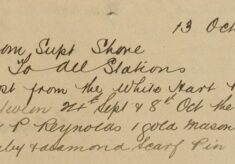 13 Oct
om Supt Shore
To All Stations
ost from the White Hart
between 24th Sept & 8th Oct the
P Reynolds 1 gold mason
by & diamond Scarf Pin